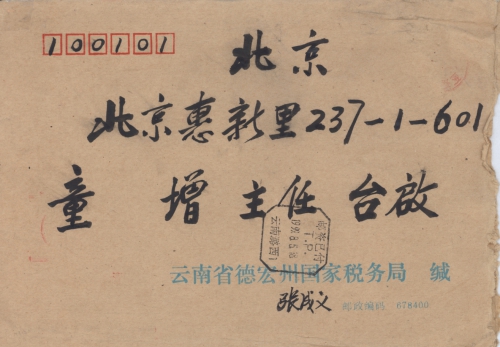 100101
北京
北京惠新里237-1-601
童 增 主任 台啟
邮资已付
T.P.
云南潞西1
云南省德宏州国家税务局 缄
张成文
邮政编码 678400